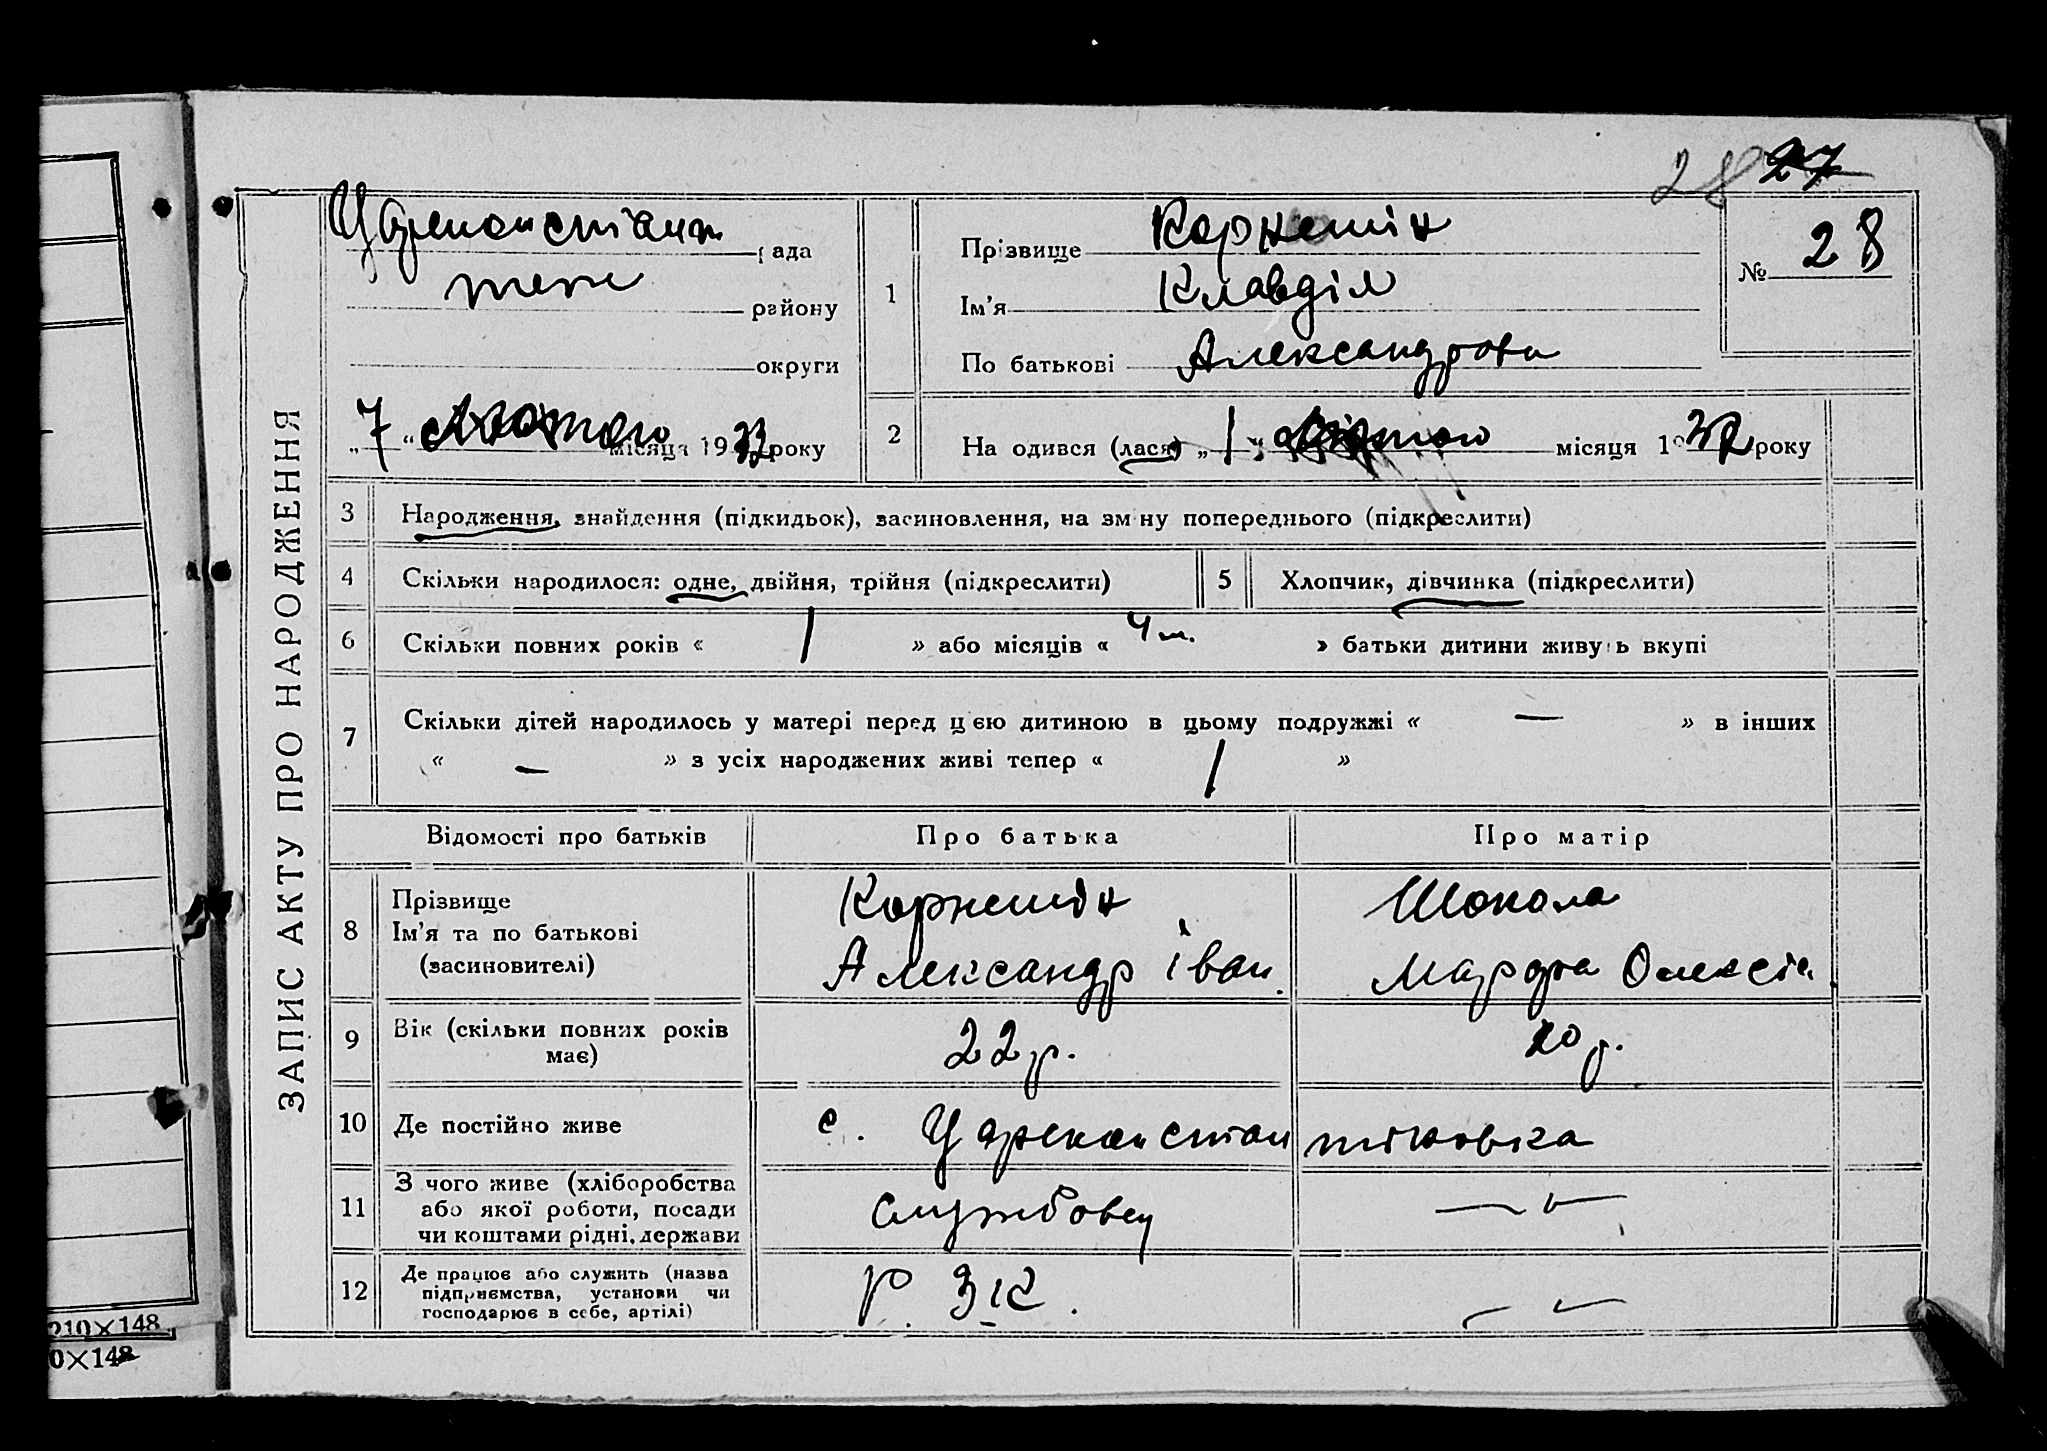 28 27
ЗАПИС АКТУ ПРО НАРОДЖЕННЯ
Царекон рада
району
округи
„7“ лютого місяця 1933 року
1
Прізвище Корнешін
Ім'я Клавдія
По батькові Александровн
№ 28
2 На одився (лася) „1“ лютого місяця 193 року
3 Народження, знайдення (підкидьок), засиновлення, на зм ну попереднього (підкреслити)
4 Скільки народилося: одне, двійня, трійня (підкреслити)
5 Хлопчик, дівчинка (підкреслити)
6 Скільки повних років « 1 » або місяців « 4 м. » батьки дитини живуть вкупі
7 Скільки дітей народилось у матері перед цією дитиною в цьому подружжі « — » в інших
« — » з усіх народжених живі тепер « 1 »
Відомості про батьків Про батька Про матір
8 Прізвище
Ім'я та по батькові
(засиновителі)
Корнешін
Александр Іван.
Шокола
Марфа Олексіє.
9 Вік (скільки повних років
має)
22 р.
20 р.
10 Де постійно живе с. Цареконстантіновка
11 З чого живе (хліборобства
або якої роботи, посади
чи коштами рідні, держави
службовец
— " —
12 Де працює або служить (назва
підприємства, установи чи
господарює в себе, артілі)
Р. З К.
— " —
210×148
0×148